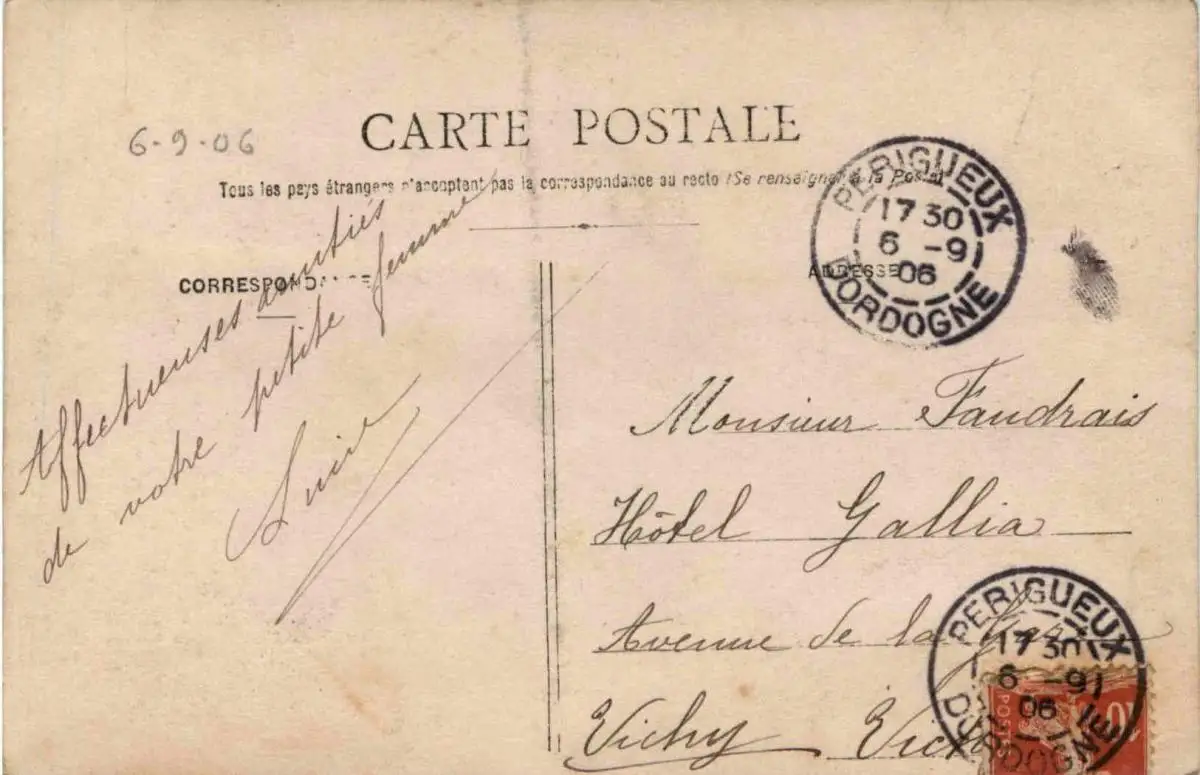 CARTE POSTALE
6-9-06
Tous les pays étrangers n'acceptent pas la correspondance au recto (Se renseigner à la Poste)
CORRESPONDANCE
ADRESSE
PERIGUEUX
17 30
6 -9
06
DORDOGNE
Affectueuses amitiés
de votre petite femme
Monsieur Faudrais
Hôtel Gallia
Avenue de la
Vichy
PERIGUEUX
17 30
6 -9
06
DORDOGNE
POSTES
10